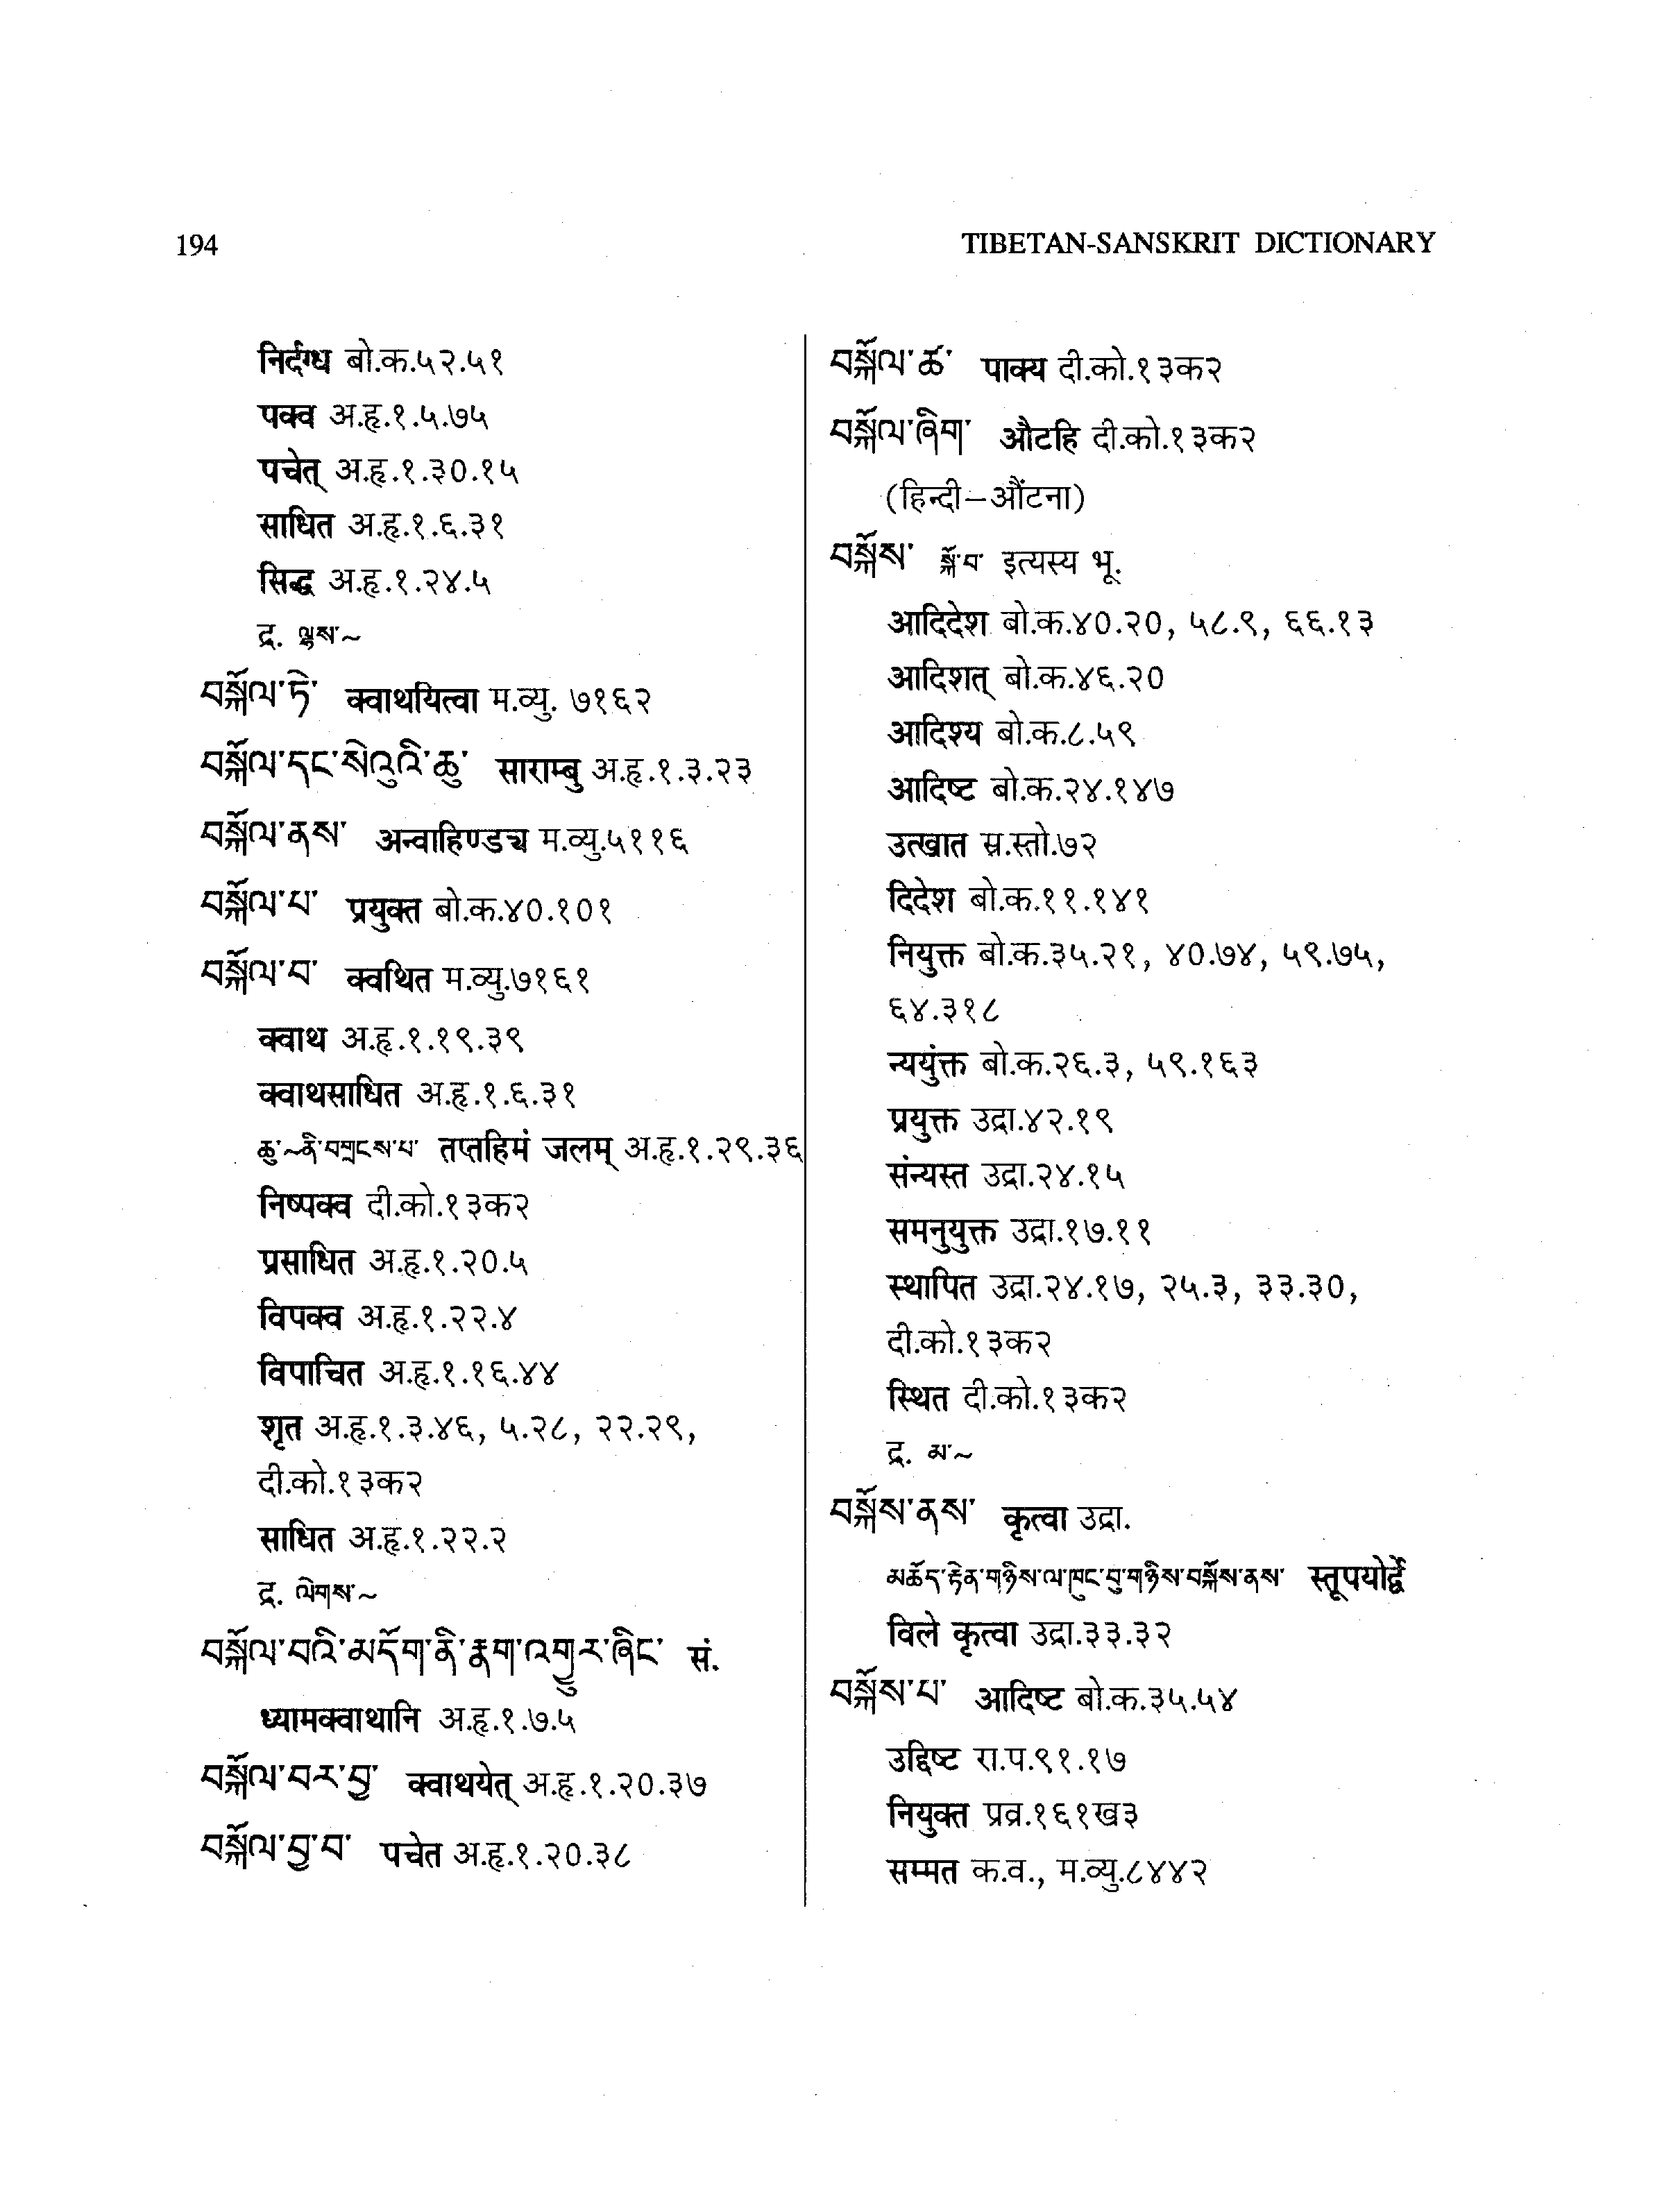 194
TIBETAN-SANSKRIT DICTIONARY
निर्दग्ध बो.क.५२.५१
पक्व अ.हृ.१.५.७५
पचेत् अ.हृ.१.३०.१५
साधित अ.हृ.१.६.३१
सिद्ध अ.हृ.१.२४.५
द्र. ལྷས་~
བསྐོལ་ཏེ་ क्वाथयित्वा म.व्यु. ७१६२
བསྐོལ་དང་སེའུའི་ཆུ་ साराम्बु अ.हृ.१.३.२३
བསྐོལ་ནས་ अन्वाहिण्डच्य म.व्यु.५११६
བསྐོལ་པ་ प्रयुक्त बो.क.४०.१०१
བསྐོལ་བ་ क्वथित म.व्यु.७१६१
क्वाथ अ.हृ.१.१९.३९
क्वाथसाधित अ.हृ.१.६.३१
ཆུ་~ནི་བགྲངས་པ་ तप्तहिमं जलम् अ.हृ.१.२९.३६
निष्पक्व दी.को.१३क२
प्रसाधित अ.हृ.१.२०.५
विपक्व अ.हृ.१.२२.४
विपाचित अ.हृ.१.१६.४४
शृत अ.हृ.१.३.४६, ५.२८, २२.२९,
दी.को.१३क२
साधित अ.हृ.१.२२.२
द्र. ལེགས་~
བསྐོལ་བའི་མདོག་ནི་རྣག་འགྱུར་ཞིང་ सं.
ध्यामक्वाथानि अ.हृ.१.७.५
བསྐོལ་བར་བྱ་ क्वाथयेत् अ.हृ.१.२०.३७
བསྐོལ་བྱ་བ་ पचेत अ.हृ.१.२०.३८
བསྐོལ་ཚ་ पाक्य दी.को.१३क२
བསྐོལ་ཞིག་ औटहि दी.को.१३क२
(हिन्दी–औंटना)
བསྐོས་ སྐོ་བ་ इत्यस्य भू.
आदिदेश बो.क.४०.२०, ५८.९, ६६.१३
आदिशत् बो.क.४६.२०
आदिश्य बो.क.८.५९
आदिष्ट बो.क.२४.१४७
उत्खात स्र.स्तो.७२
दिदेश बो.क.११.१४१
नियुक्त बो.क.३५.२१, ४०.७४, ५९.७५,
६४.३१८
न्ययुंक्त बो.क.२६.३, ५९.१६३
प्रयुक्त उद्रा.४२.१९
संन्यस्त उद्रा.२४.१५
समनुयुक्त उद्रा.१७.११
स्थापित उद्रा.२४.१७, २५.३, ३३.३०,
दी.को.१३क२
स्थित दी.को.१३क२
द्र. མ་~
བསྐོས་ནས་ कृत्वा उद्रा.
མཆོད་རྟེན་གཉིས་ལ་ཁུང་བུ་གཉིས་བསྐོས་ནས་ स्तूपयोर्द्वे
विले कृत्वा उद्रा.३३.३२
བསྐོས་པ་ आदिष्ट बो.क.३५.५४
उद्दिष्ट रा.प.९१.१७
नियुक्त प्रव्र.१६१ख३
सम्मत क.व., म.व्यु.८४४२